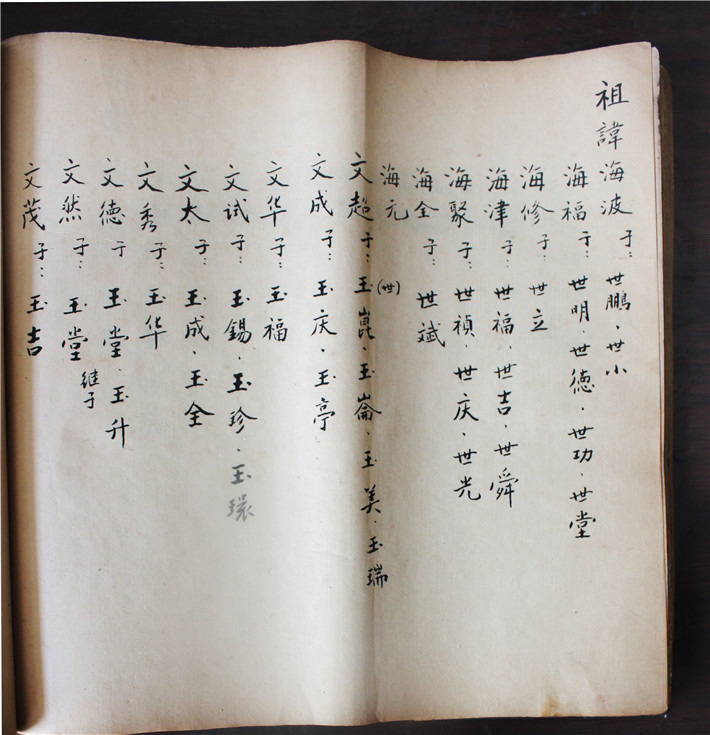 祖諱海波子:世鵬.世小
海福子:世明.世德.世功.世堂
海修子:世立
海津子:世福.世吉.世舜
海聚子:世禎.世庆.世光
海全子:世斌
海元
文超子:玉(世)崑.玉崙.玉美.玉瑞
文成子:玉庆.玉亭
文华子:玉福
文试子:玉錫.玉珍.玉環
文太子:玉成.玉全
文秀子:玉华
文德子玉堂.玉升
文然子:玉堂继子
文茂子:玉吉